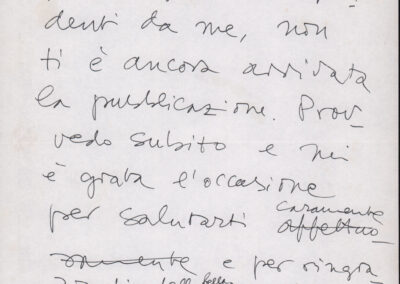 denti da me, non
ti è ancora arrivata
la pubblicazione. Prov-
vedo subito e mi
è grata l'occasione
per salutarti caramente
affettuo-
samente e per ringra-
bella